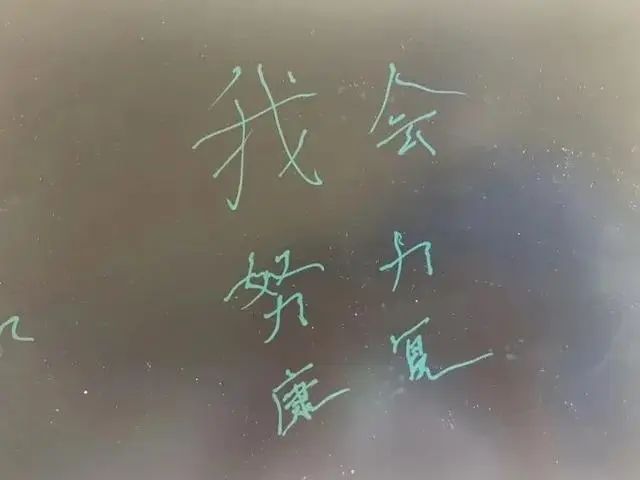 我会
努力
康复